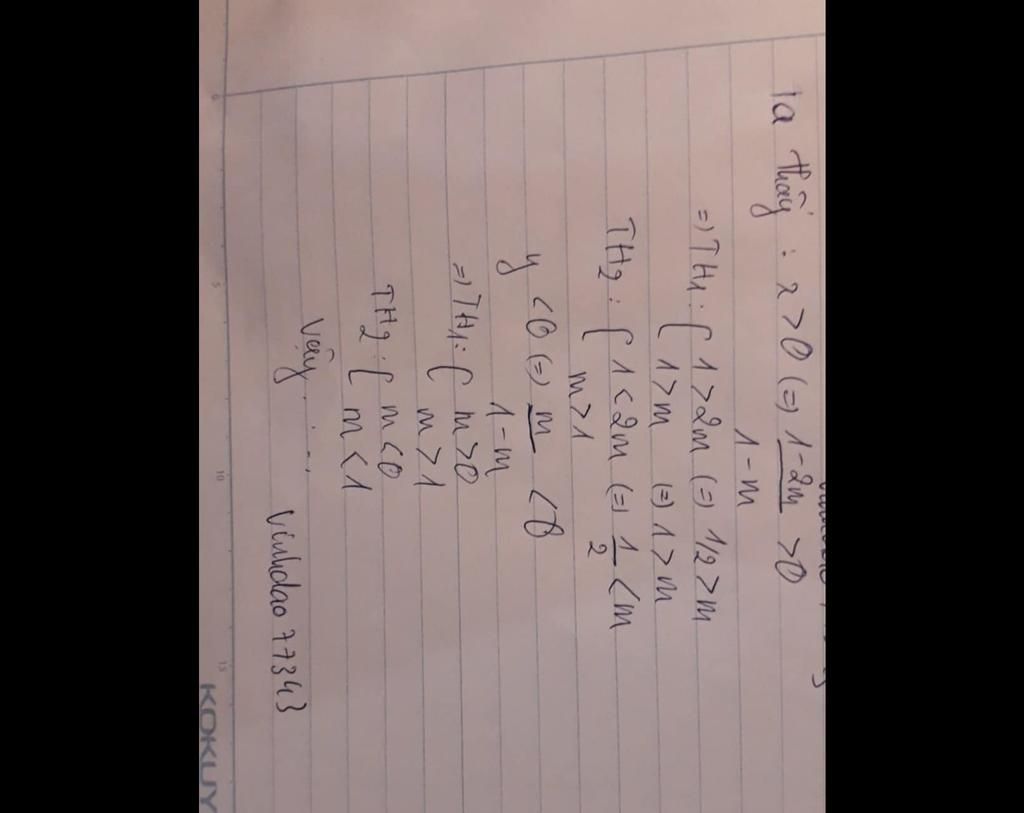 Ta thấy : x > 0 (=) 1-2m / 1-m > 0
=) TH1: { 1 > 2m (=) 1/2 > m
1 > m (=) 1 > m
TH2: { 1 < 2m (=) 1/2 < m
m > 1
y < 0 (=) m / 1-m < 0
=) TH1: { m > 0
m > 1
TH2: { m < 0
m < 1
Vậy . . . .
vinhdao77343
0 5 10 15
KOKUY